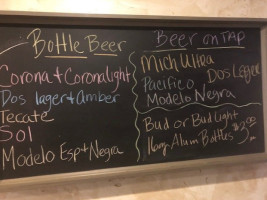 Bottle Beer
Corona + Corona light
Dos lager + Amber
Tecate
Sol
Modelo Esp + Negra
Beer on TAP
Mich Ultra
Pacifico Dos Leger
Modelo Negra
Bud or Bud Light
Alum Bottles $3